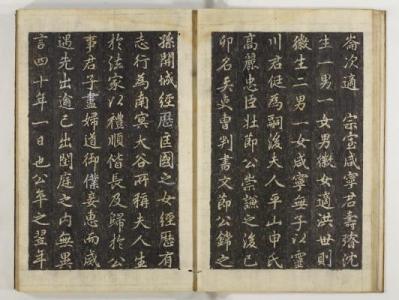 崙次適 宗室咸寧君壽 沈
生一男一女男徵女適洪世則
徵生二男一女咸寧無子以靈
川君侹為嗣後夫人平山申氏
高麗忠臣壯節公崇謙之後己
卯名 吏曹判書文節公鏛之
孫開城經歷匡國之女經歷有
志行為南冥大谷所稱夫人生
於法家以禮順偕長及歸於公
事君子盡婦道御僕妾惠而威
遇先出逾己出閨庭之內無異
言四十年一日也公卒之翌年